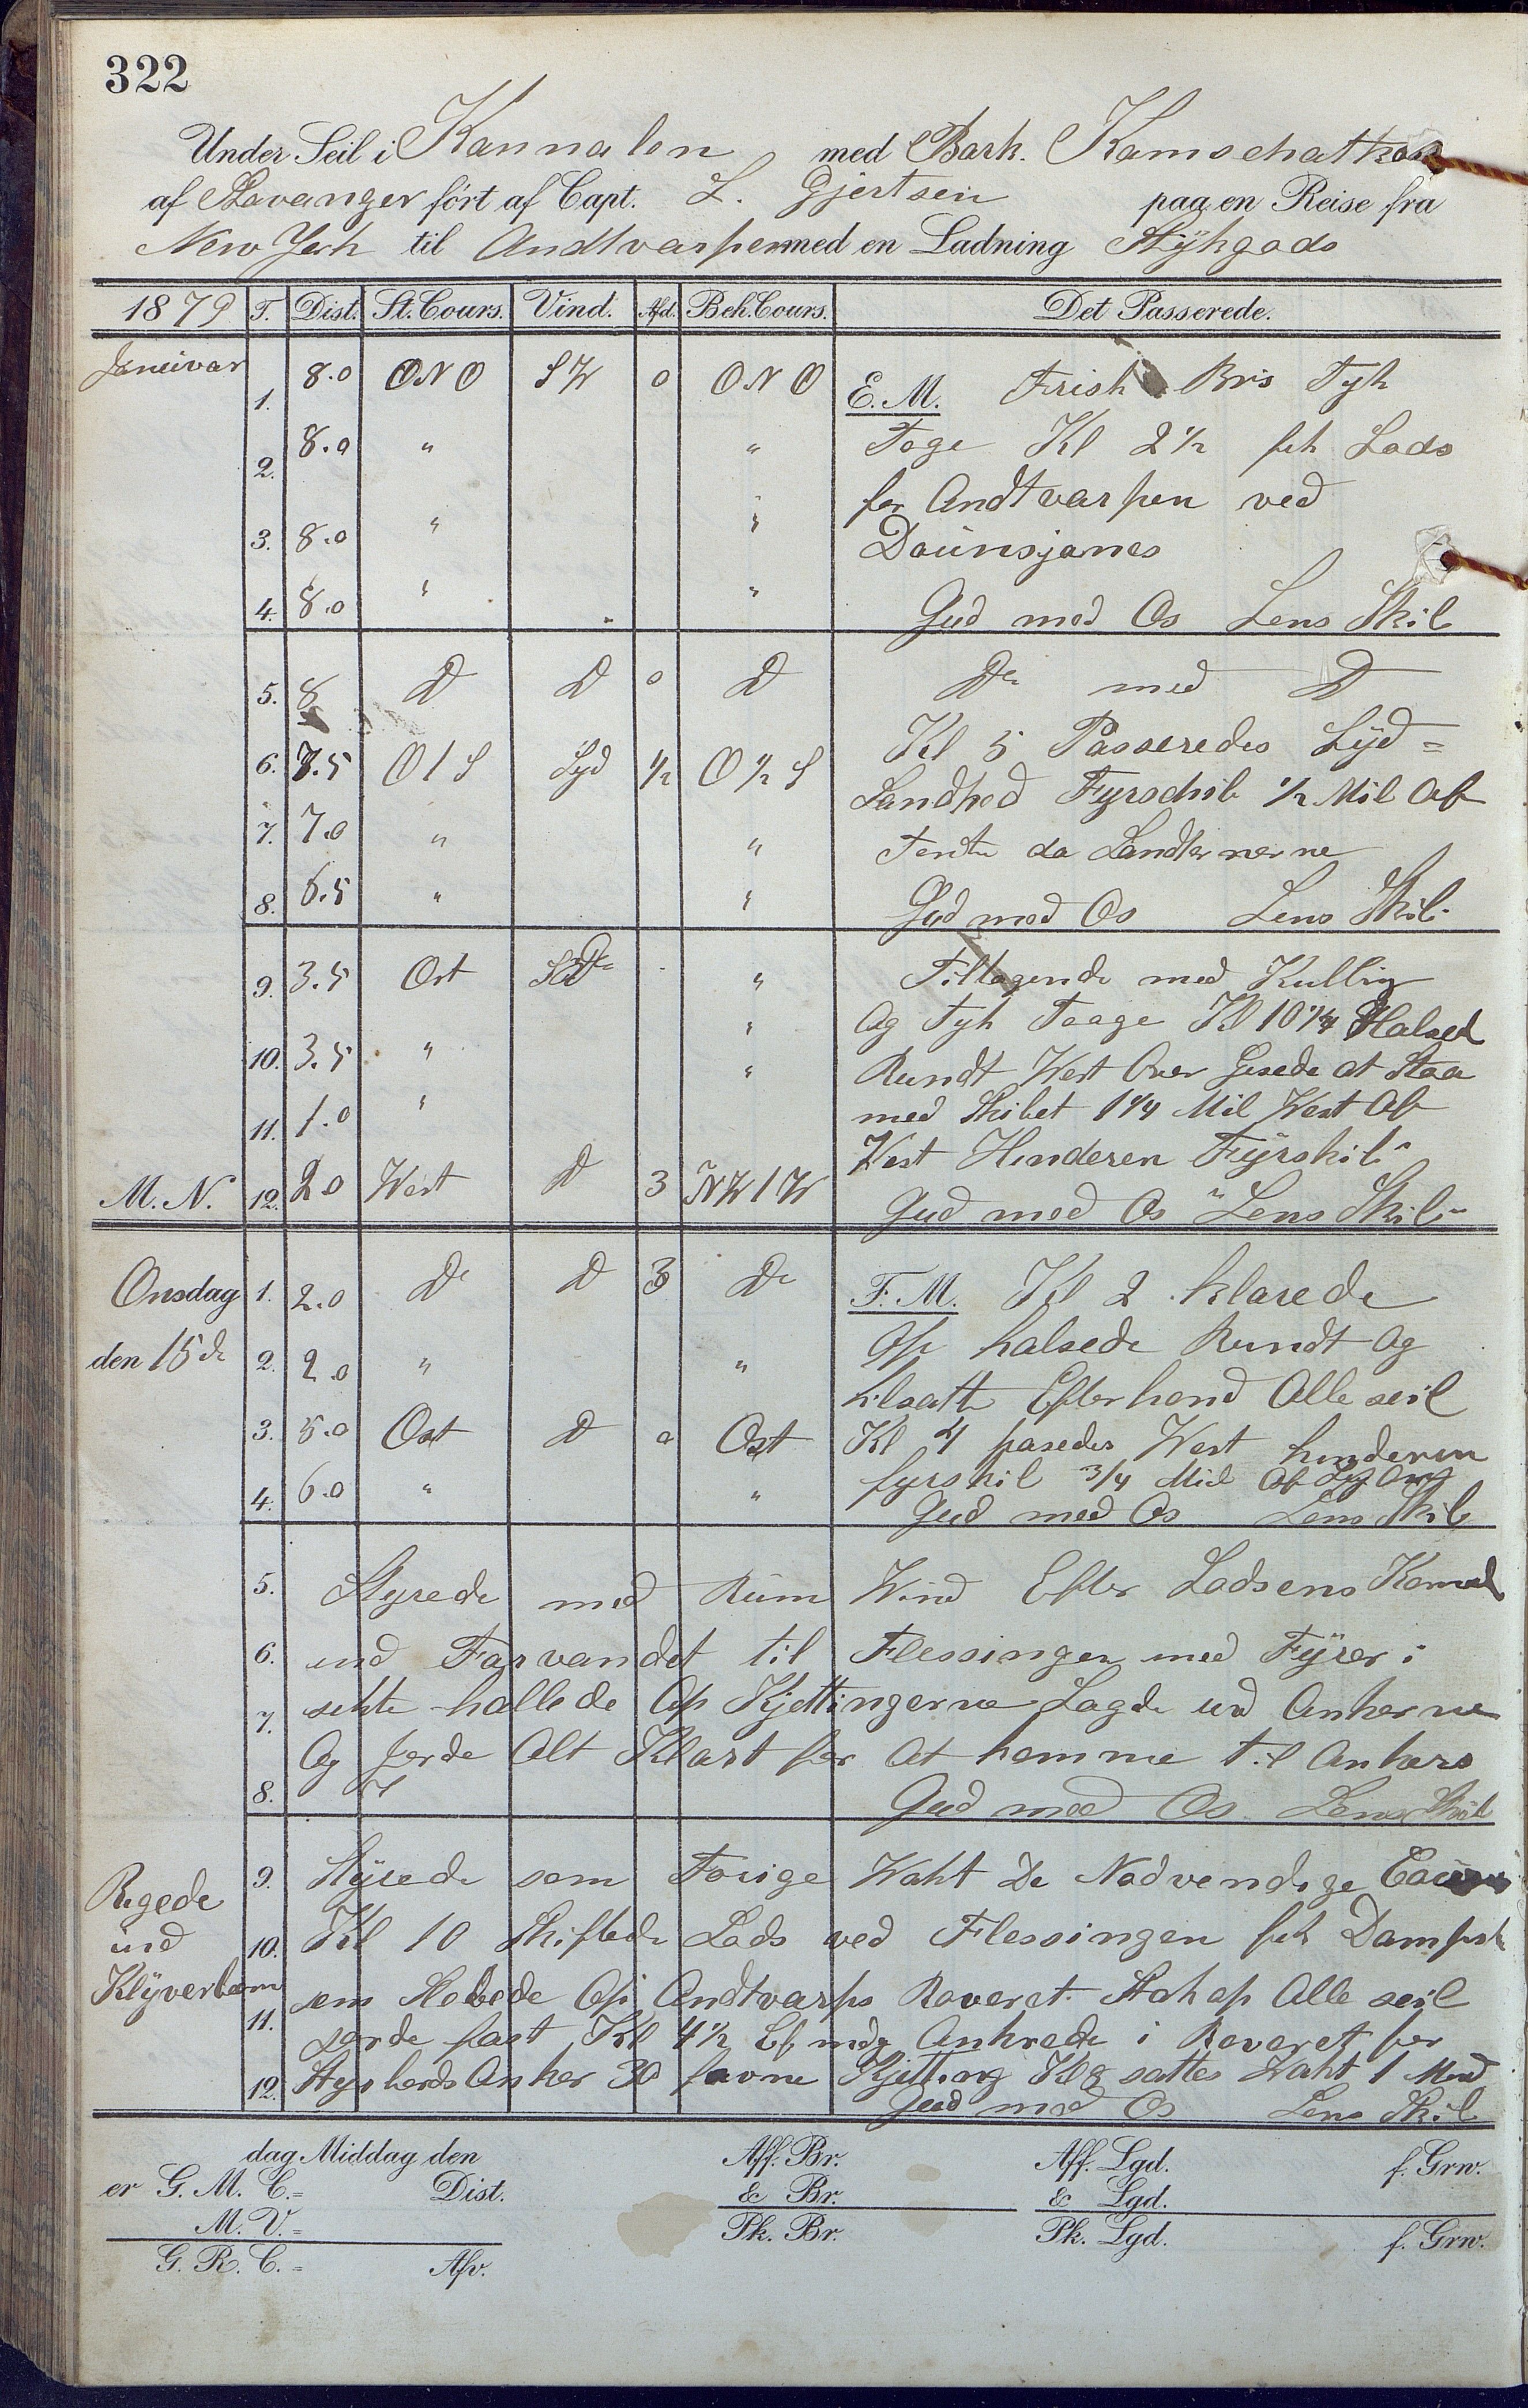 322
Under Seil i Kannalen med Bark. Kamschatka
af Stavanger fört af Capt. L. Gjertsen paa en Reise fra
New York til Andtvarpen med en Ladning Stÿkgods
1879 T. Dist. St. Cours. Vind. Afd. Beh. Cours. Det Passerede.
Januvar 1. 8.0 ONO SW 0 ONO E. M. Frisk Bris Tyk
2. 8.0 " " Toge Kl 2 1/2 fik Lods
for Andtvarpen ved
3. 8.0 " " Daünsjanes
4. 8.0 " " Gud med Os Lens Skib
5. 8 D D 0 D De med D
6. 7.5 O 1 S Syd 1/2 O 1/2 S Kl 5 Passeredes Syd=
Landhed Fyrschib 1/2 Mil Af
7. 7.0 " " Tente da Landternerne
8. 6.5 " " Gud med Os Lens Skib
9. 3.5 Ost " Tiltagende med Kulling
10. 3.5 " " Og Tyk Taage Kl 10 1/4 Halsed
" Rundt West Over Gisede at Staa
11. 1.0 " med Skibet 1 1/4 Mil West Af
West Hinderen Fÿrskib
M. N. 12. 2.0 West D 3 NW 1 W Gud med Os Lens Skib
Onsdag 1. 2.0 De D 3 De F. M. Kl 2 klarede
den 15de 2. 2.0 " " Op halsede Rundt Og
tilsatte Efterhand Alle seil
3. 5.0 Ost D 0 Ost Kl 4 pasedes West hinderen
4. 6.0 " " fyrskib 3/4 Mil Af
Gud med Os Lens Skib
5. Styrede med Rüm Wind Efter Lodsens Komand
6. ind Farvandet til Flessingen med Fÿrer i
7. sikte hallede Op Kjettingerne Lagde ud Ankerne
Og Jorde Alt Klart for At komme til Ankers
8. Gud med Os Lens Skib
9. Stÿrede som Forige Wakt De Nodvendige
Regede
ind
Klÿverbom
10. Kl 10 Skiftede Lods ved Flessingen fik Dampsk
11. som Slobede Op Andtvarps Reveret Stak op Alle seil
Jorde fast Kl 4 1/2 Ef mdg Ankrede i Reveret for
12. Styrbords Anker 30 favne Kjetting Kl 8 sattes Wakt 1 Mand
Gud med Os Lens Skib
dag Middag den Aff. Br. Aff. Lgd. f. Grw.
er G. M. C.= Dist. & Br. & Lgd.
M. V.= Pk. Br. Pk. Lgd. f. Grw.
G. R. C.= Afv.